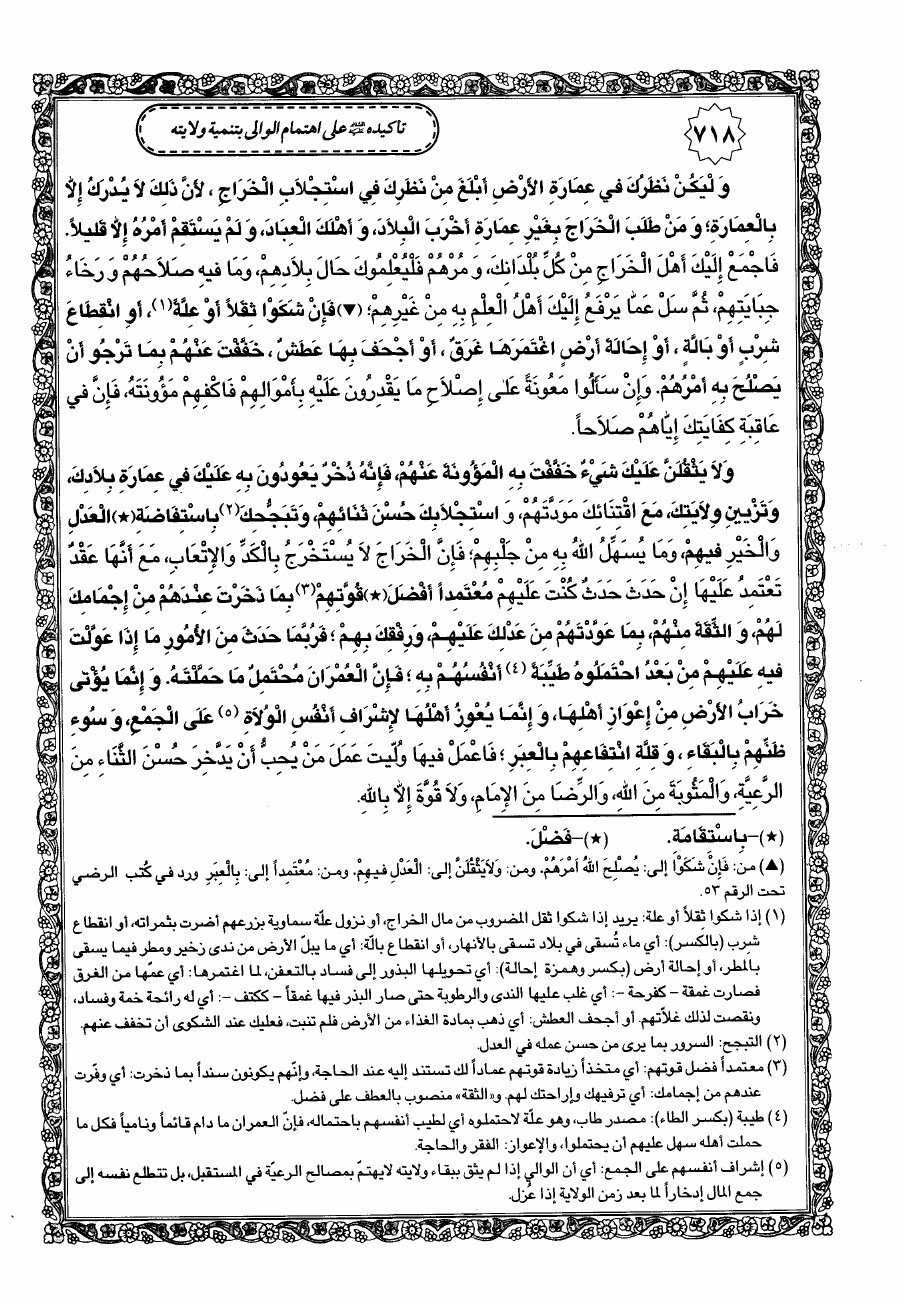 ٧١٨
تأكيده عليه السلام على اهتمام الوالي بتنمية ولايته
وَ لْيَكُنْ نَظَرُكَ في عِمَارَةِ الأَرْضِ أَبْلَغَ مِنْ نَظَرِكَ في اسْتِجْلاَبِ الْخَرَاجِ ، لأَنَّ ذَلِكَ لاَ يُدْرَكُ إِلاَّ
بِالْعِمَارَةِ؛ وَ مَنْ طَلَبَ الْخَرَاجَ بِغَيْرِ عِمَارَةٍ أَخْرَبَ الْبِلاَدَ، وَ أَهْلَكَ الْعِبَادَ، وَ لَمْ يَسْتَقِمْ أَمْرُهُ إِلاَّ قَليلاً.
فَاجْمَعْ إِلَيْكَ أَهْلَ الْخَرَاجِ مِنْ كُلِّ بُلْدَانِكَ، وَ مُرْهُمْ فَلْيُعْلِمُوكَ حَالَ بِلاَدِهِمْ، وَمَا فيهِ صَلاَحُهُمْ وَ رَخَاءُ
جِبَايَتِهِمْ، ثُمَّ سَلْ عَمَّا يَرْفَعُ إِلَيْكَ أَهْلُ الْعِلْمِ بِهِ مِنْ غَيْرِهِمْ؛ (▼) فَإِنْ شَكَوْا ثِقَلاً أَوْ عِلَّةً(١)، أَوِ انْقِطَاعَ
شِرْبٍ أَوْ بَالَّةٍ ، أَوْ إِحَالَةَ أَرْضٍ اغْتَمَرَهَا غَرَقٌ ، أَوْ أَجْحَفَ بِهَا عَطَشٌ ، خَفَّفْتَ عَنْهُمْ بِمَا تَرْجُو أَنْ
يَصْلُحَ بِهِ أَمْرُهُمْ. وَإِنْ سَأَلُوا مَعُونَةً عَلَى إِصْلاَحِ مَا يَقْدِرُونَ عَلَيْهِ بِأَمْوَالِهِمْ فَاكْفِهِمْ مَؤُونَتَهُ، فَإِنَّ في
عَاقِبَةِ كِفَايَتِكَ إِيَّاهُمْ صَلاَحاً.
وَلاَ يَثْقُلَنَّ عَلَيْكَ شَيْءٌ خَفَّفْتَ بِهِ الْمَؤُونَةَ عَنْهُمْ، فَإِنَّهُ ذُخْرٌ يَعُودُونَ بِهِ عَلَيْكَ في عِمَارَةِ بِلاَدِكَ،
وَتَزْيينِ وِلاَيَتِكَ، مَعَ اقْتِنَائِكَ مَوَدَّتَهُمْ، وَ اسْتِجْلاَبِكَ حُسْنَ ثَنَائِهِمْ، وَتَبَجُّحِكَ(٢) بِاسْتِفَاضَةِ(★) الْعَدْلِ
وَالْخَيْرِ فيهِمْ، وَمَا يُسَهِّلُ اللّهُ بِهِ مِنْ جَلْبِهِمْ؛ فَإِنَّ الْخَرَاجَ لاَ يُسْتَخْرَجُ بِالْكَدِّ وَالإِتْعَابِ، مَعَ أَنَّهَا عَقْدٌ
تَعْتَمِدُ عَلَيْهَا إِنْ حَدَثَ حَدَثٌ كُنْتَ عَلَيْهِمْ مُعْتَمِداً أَفْضَلَ(★) قُوَّتِهِمْ(٣) بِمَا ذَخَرْتَ عِنْدَهُمْ مِنْ إِجْمَامِكَ
لَهُمْ، وَ الثِّقَةَ مِنْهُمْ، بِمَا عَوَّدْتَهُمْ مِنْ عَدْلِكَ عَلَيْهِمْ، وَرِفْقِكَ بِهِمْ ؛ فَرُبَّمَا حَدَثَ مِنَ الأُمُورِ مَا إِذَا عَوَّلْتَ
فيهِ عَلَيْهِمْ مِنْ بَعْدُ احْتَمَلُوهُ طَيِّبَةً (٤) أَنْفُسُهُمْ بِهِ ؛ فَإِنَّ الْعُمْرَانَ مُحْتَمِلٌ مَا حَمَّلْتَهُ. وَ إِنَّمَا يُؤْتَى
خَرَابُ الأَرْضِ مِنْ إِعْوَازِ أَهْلِهَا، وَ إِنَّمَا يُعْوِزُ أَهْلُهَا لإِشْرَافِ أَنْفُسِ الْوُلاَةِ (٥) عَلَى الْجَمْعِ، وَ سُوءِ
ظَنِّهِمْ بِالْبَقَاءِ ، وَ قِلَّةِ انْتِفَاعِهِمْ بِالْعِبَرِ ؛ فَاعْمَلْ فيهَا وُلِّيتَ عَمَلَ مَنْ يُحِبُّ أَنْ يَدَّخِرَ حُسْنَ الثَّنَاءِ مِنَ
الرَّعِيَّةِ، وَالْمَثُوبَةَ مِنَ اللّهِ، وَالرِّضَا مِنَ الإِمَامِ، وَلاَ قُوَّةَ إِلاَّ بِاللّهِ.
(★)–بِاسْتِقَامَةِ. (★)–فَضْلَ.
(▲) من: فَإِنْ شَكَوْا إلى: يُصْلِحَ اللّهُ أَمْرَهُمْ. ومن: وَلاَيَثْقُلَنَّ إلى: الْعَدْلِ فيهِمْ. ومن: مُعْتَمِداً إلى: بِالْعِبَرِ ورد في كُتب الرضي
تحت الرقم ٥٣.
(١) إذا شكوا ثِقلاً أو علة: يريد إذا شكوا ثقل المضروب من مال الخراج، أو نزول علّة سماوية بزرعهم أضرت بثمراته، أو انقطاع
شِرب (بالكسر): أي ماء تُسقى في بلاد تسقى بالأنهار، أو انقطاع بالّة: أي ما يبلّ الأرض من ندى زخير ومطر فيما يسقى
بالمطر، أو إحالة أرض (بكسر وهمزة إحالة): أي تحويلها البذور إلى فساد بالتعفن، لما اغتمرها: أي عمّها من الغرق
فصارت غمقة – كفرحة –: أي غلب عليها الندى والرطوبة حتى صار البذر فيها غمقاً – ككتف –: أي له رائحة خمة وفساد،
ونقصت لذلك غلاّتهم. أو أجحف العطش: أي ذهب بمادة الغذاء من الأرض فلم تنبت، فعليك عند الشكوى أن تخفف عنهم.
(٢) التبجح: السرور بما يرى من حسن عمله في العدل.
(٣) معتمداً فضل قوتهم: أي متخذاً زيادة قوتهم عماداً لك تستند إليه عند الحاجة، وإنّهم يكونون سنداً بما ذخرت: أي وفّرت
عندهم من إجمامك: أي ترفيهك وإراحتك لهم. و«الثقة» منصوب بالعطف على فضل.
(٤) طيبة (بكسر الطاء): مصدر طاب، وهو علّة لاحتملوه أي لطيب أنفسهم باحتماله، فإنّ العمران ما دام قائماً ونامياً فكل ما
حملت أهله سهل عليهم أن يحتملوا، والإعواز: الفقر والحاجة.
(٥) إشراف أنفسهم على الجمع: أي أن الوالي إذا لم يثق ببقاء ولايته لايهتمّ بمصالح الرعيّة في المستقبل، بل تتطلع نفسه إلى
جمع المال إدخاراً لما بعد زمن الولاية إذا عُزل.